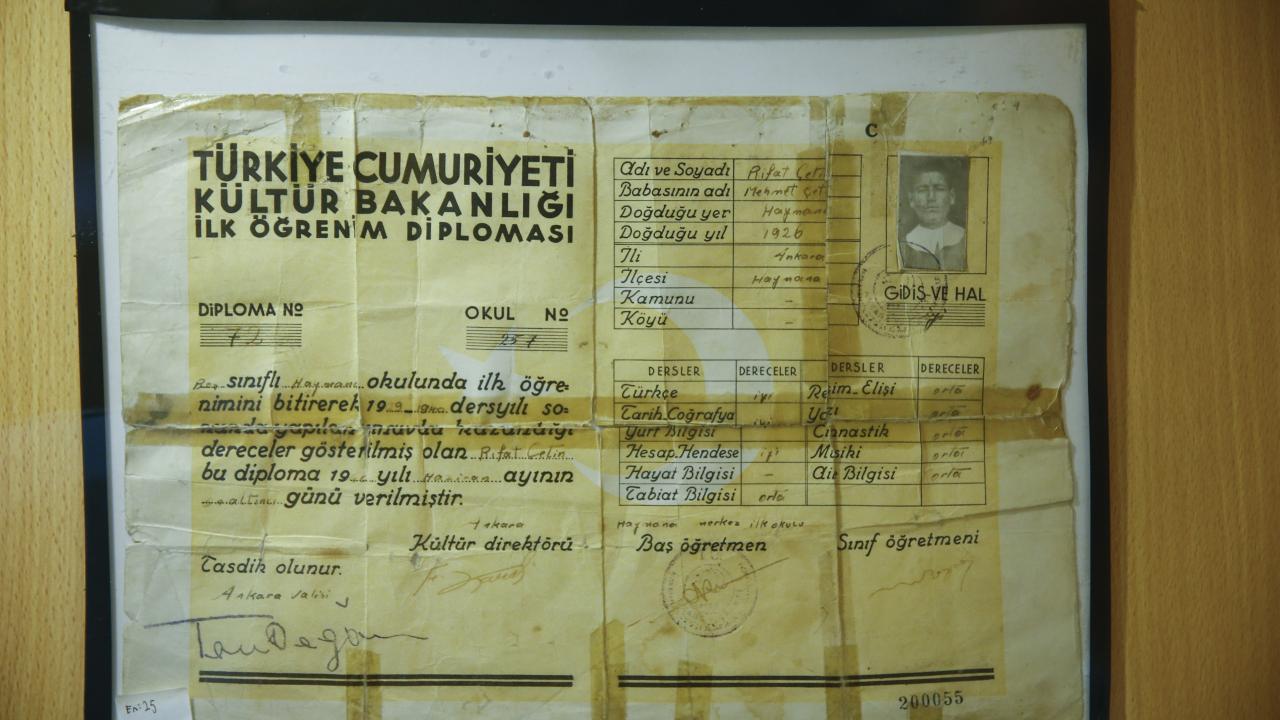 TÜRKİYE CUMURİYETİ
KÜLTÜR BAKANLIĞI
İLK ÖĞRENİM DİPLOMASI
DİPLOMA № 72
OKUL № 257
sınıflı Haymana okulunda ilk öğre-
nimini bitirerek 19 dersyılı so-
nunda yapılan sınavda kazandığı
dereceler gösterilmiş olan Rıfat Çetin
bu diploma 19 yılı Haziran ayının
günü verilmiştir.
Ankara
Kültür direktörü
Tasdik olunur.
Ankara valisi
Tandoğan
En:25
C
Adı ve Soyadı Rıfat Çeti
Babasının adı Mehmet Çet
Doğduğu yer Haymana
Doğduğu yıl 1926
İli Ankara
İlçesi Haymana
Kamunu –
Köyü –
GİDİŞ VE HAL
DERSLER DERECELER DERSLER DERECELER
Türkçe iyi Resim. Elişi orta
Tarih. Coğrafya iyi Yazı orta
Yurt Bilgisi Cimnastik orta
Hesap. Hendese iyi Musiki orta
Hayat Bilgisi – Aile Bilgisi orta
Tabiat Bilgisi orta
Haymana merkez ilkokulu
Baş öğretmen
Sınıf öğretmeni
200055